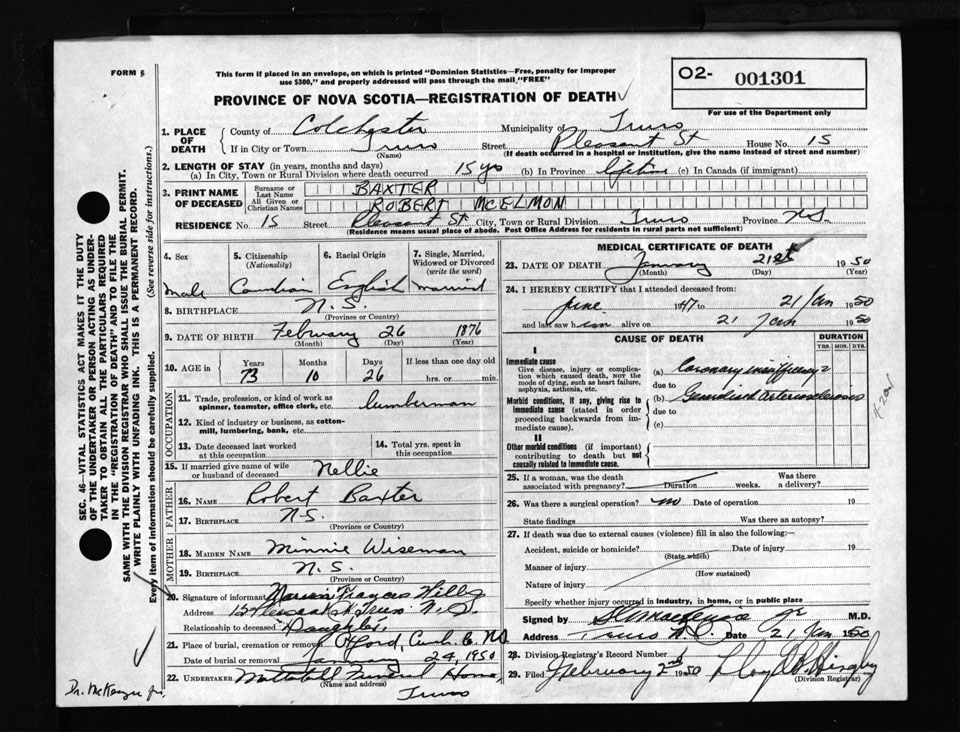 FORM 6
This form if placed in an envelope, on which is printed "Dominion Statistics—Free, penalty for improper
use $300," and properly addressed will pass through the mail "FREE"
O2- 001301
For use of the Department only
PROVINCE OF NOVA SCOTIA—REGISTRATION OF DEATH
1. PLACE OF DEATH
County of Colchester Municipality of Truro
If in City or Town Truro Street Pleasant St House No. 15
(Name) (If death occurred in a hospital or institution, give the name instead of street and number)
2. LENGTH OF STAY (in years, months and days)
(a) In City, Town or Rural Division where death occurred 15 yrs (b) In Province lifetime (c) In Canada (if immigrant)
3. PRINT NAME OF DECEASED
Surname or Last Name BAXTER
All Given or Christian Names ROBERT MCELMON
RESIDENCE No. 15 Street Pleasant St. City, Town or Rural Division Truro Province N.S.
(Residence means usual place of abode. Post Office Address for residents in rural parts not sufficient)
4. Sex
5. Citizenship (Nationality)
6. Racial Origin
7. Single, Married, Widowed or Divorced (write the word)
male Canadian English married
8. BIRTHPLACE N.S.
(Province or Country)
9. DATE OF BIRTH February 26 1876
(Month) (Day) (Year)
10. AGE in Years Months Days If less than one day old
73 10 26 hrs. or min.
OCCUPATION
11. Trade, profession, or kind of work as spinner, teamster, office clerk, etc. lumberman
12. Kind of industry or business, as cotton-mill, lumbering, bank, etc.
13. Date deceased last worked at this occupation
14. Total yrs. spent in this occupation
15. If married give name of wife or husband of deceased Nellie
FATHER
16. NAME Robert Baxter
17. BIRTHPLACE N.S.
(Province or Country)
MOTHER
18. MAIDEN NAME Minnie Wiseman
19. BIRTHPLACE N.S.
(Province or Country)
20. Signature of informant Frances Hill
Address 15 Pleasant St Truro N.S.
Relationship to deceased Daughter
21. Place of burial, cremation or removal Oxford, Cumb. C. NS
Date of burial or removal January 24, 1950
22. UNDERTAKER Mattatall Funeral Home
(Name and address) Truro
MEDICAL CERTIFICATE OF DEATH
23. DATE OF DEATH January 21st 1950
(Month) (Day) (Year)
24. I HEREBY CERTIFY that I attended deceased from:
June 1947 to 21 Jan 1950
and last saw him alive on 21 Jan 1950
CAUSE OF DEATH
DURATION
YRS. MOS. DYS.
I
Immediate cause
Give disease, injury or complication which caused death, NOT the mode of dying, such as heart failure, asphyxia, asthenia, etc.
(a) Coronary insufficiency
due to
Morbid conditions, if any, giving rise to immediate cause (stated in order proceeding backwards from immediate cause).
(b) Generalised arteriosclerosis
due to
(c)
II
Other morbid conditions (if important) contributing to death but not causally related to immediate cause.
25. If a woman, was the death associated with pregnancy? Duration weeks. Was there a delivery?
26. Was there a surgical operation? no Date of operation 19
State findings Was there an autopsy?
27. If death was due to external causes (violence) fill in also the following:—
Accident, suicide or homicide? Date of injury 19
(State which)
Manner of injury
(How sustained)
Nature of injury
Specify whether injury occurred in industry, in home, or in public place
Signed by S R MacKenzie jr M.D.
Address Truro N.S. Date 21 Jan 1950
28. Division Registrar's Record Number
29. Filed February 2nd 1950
(Division Registrar)
SEC. 46—VITAL STATISTICS ACT MAKES IT THE DUTY
OF THE UNDERTAKER OR PERSON ACTING AS UNDER-
TAKER TO OBTAIN ALL THE PARTICULARS REQUIRED
IN THE "REGISTRATION OF DEATH" AND TO FILE THE
SAME WITH THE DIVISION REGISTRAR WHO SHALL ISSUE THE BURIAL PERMIT.
WRITE PLAINLY WITH UNFADING INK. THIS IS A PERMANENT RECORD.
Every item of information should be carefully supplied. (See reverse side for instructions.)
Dr. McKenzie jr.